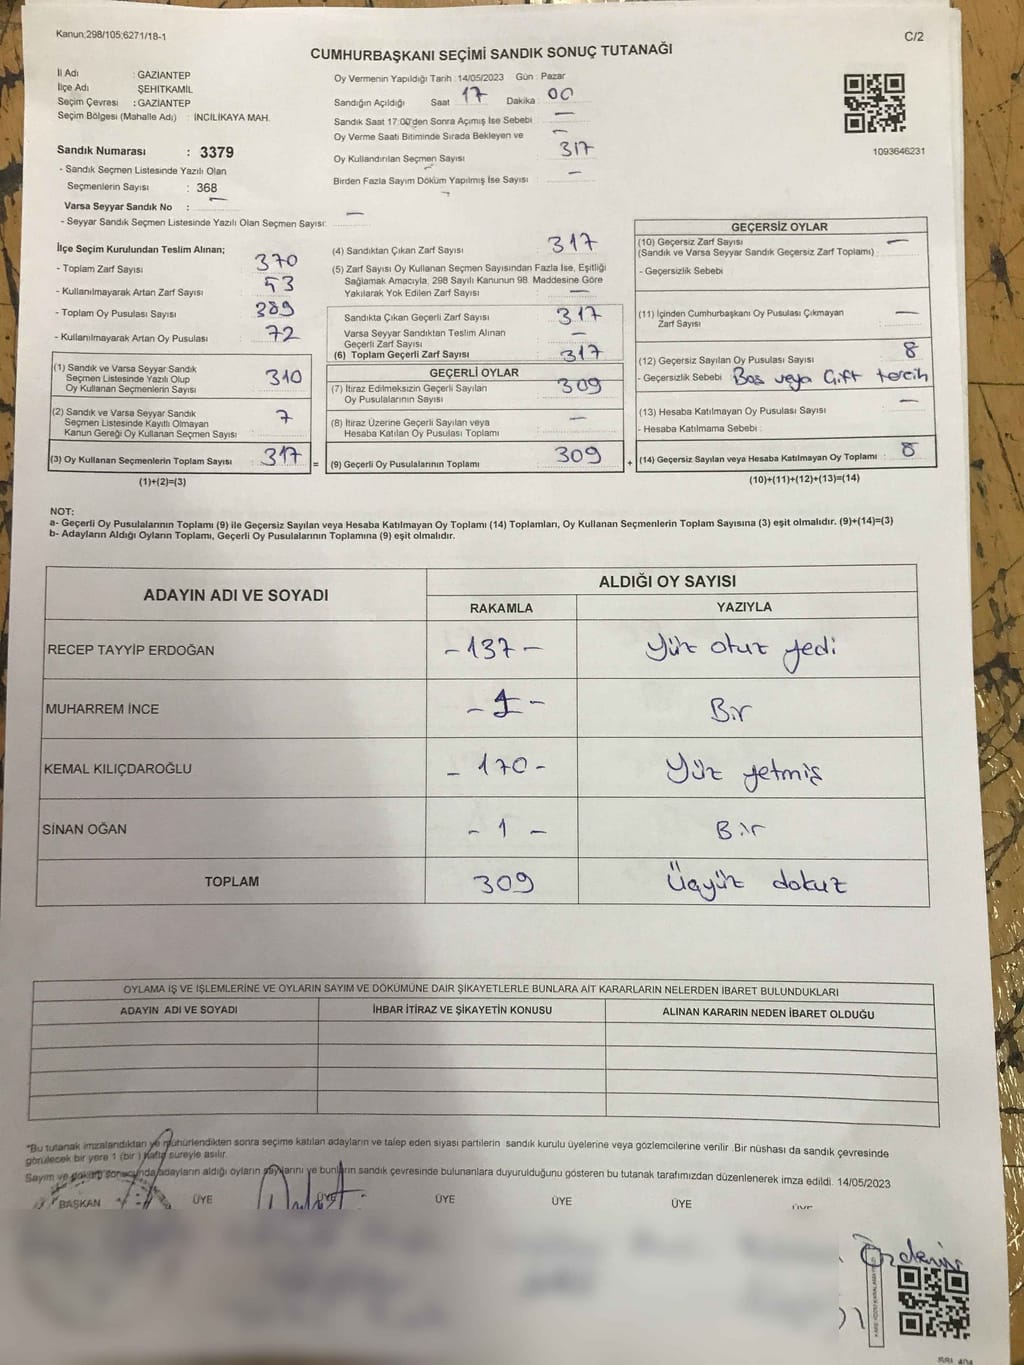 Kanun;298/105;6271/18-1
C/2
CUMHURBAŞKANI SEÇİMİ SANDIK SONUÇ TUTANAĞI
İl Adı : GAZİANTEP
İlçe Adı ŞEHİTKAMİL
Seçim Çevresi : GAZİANTEP
Seçim Bölgesi (Mahalle Adı) : İNCİLİKAYA MAH.
Sandık Numarası : 3379
- Sandık Seçmen Listesinde Yazılı Olan
Seçmenlerin Sayısı : 368
Varsa Seyyar Sandık No : —
- Seyyar Sandık Seçmen Listesinde Yazılı Olan Seçmen Sayısı: —
Oy Vermenin Yapıldığı Tarih : 14/05/2023 Gün : Pazar
Sandığın Açıldığı Saat 17 Dakika : 00
Sandık Saat 17:00'den Sonra Açımış İse Sebebi : —
Oy Verme Saati Bitiminde Sırada Bekleyen ve
Oy Kullandırılan Seçmen Sayısı : 317
Birden Fazla Sayım Döküm Yapılmış İse Sayısı : —
1093646231
İlçe Seçim Kurulundan Teslim Alınan;
- Toplam Zarf Sayısı : 370
- Kullanılmayarak Artan Zarf Sayısı : 53
- Toplam Oy Pusulası Sayısı : 389
- Kullanılmayarak Artan Oy Pusulası : 72
(1) Sandık ve Varsa Seyyar Sandık
Seçmen Listesinde Yazılı Olup
Oy Kullanan Seçmenlerin Sayısı : 310
(2) Sandık ve Varsa Seyyar Sandık
Seçmen Listesinde Kayıtlı Olmayan
Kanun Gereği Oy Kullanan Seçmen Sayısı : 7
(3) Oy Kullanan Seçmenlerin Toplam Sayısı : 317
(1)+(2)=(3)
(4) Sandıktan Çıkan Zarf Sayısı : 317
(5) Zarf Sayısı Oy Kullanan Seçmen Sayısından Fazla İse, Eşitliği
Sağlamak Amacıyla, 298 Sayılı Kanunun 98. Maddesine Göre
Yakılarak Yok Edilen Zarf Sayısı : —
Sandıkta Çıkan Geçerli Zarf Sayısı : 317
Varsa Seyyar Sandıktan Teslim Alınan
Geçerli Zarf Sayısı : —
(6) Toplam Geçerli Zarf Sayısı : 317
GEÇERLİ OYLAR
(7) İtiraz Edilmeksizin Geçerli Sayılan
Oy Pusulalarının Sayısı : 309
(8) İtiraz Üzerine Geçerli Sayılan veya
Hesaba Katılan Oy Pusulası Toplamı : —
= (9) Geçerli Oy Pusulalarının Toplamı : 309
GEÇERSİZ OYLAR
(10) Geçersiz Zarf Sayısı : —
(Sandık ve Varsa Seyyar Sandık Geçersiz Zarf Toplamı)
- Geçersizlik Sebebi :
(11) İçinden Cumhurbaşkanı Oy Pusulası Çıkmayan
Zarf Sayısı : —
(12) Geçersiz Sayılan Oy Pusulası Sayısı : 8
- Geçersizlik Sebebi : Boş veya Çift tercih
(13) Hesaba Katılmayan Oy Pusulası Sayısı : —
- Hesaba Katılmama Sebebi :
+ (14) Geçersiz Sayılan veya Hesaba Katılmayan Oy Toplamı : 8
(10)+(11)+(12)+(13)=(14)
NOT:
a- Geçerli Oy Pusulalarının Toplamı (9) ile Geçersiz Sayılan veya Hesaba Katılmayan Oy Toplamı (14) Toplamları, Oy Kullanan Seçmenlerin Toplam Sayısına (3) eşit olmalıdır. (9)+(14)=(3)
b- Adayların Aldığı Oyların Toplamı, Geçerli Oy Pusulalarının Toplamına (9) eşit olmalıdır.
ADAYIN ADI VE SOYADI ALDIĞI OY SAYISI
RAKAMLA YAZIYLA
RECEP TAYYİP ERDOĞAN - 137 - Yüz otuz yedi
MUHARREM İNCE - 1 - Bir
KEMAL KILIÇDAROĞLU - 170 - Yüz yetmiş
SİNAN OĞAN - 1 - Bir
TOPLAM 309 Üçyüz dokuz
OYLAMA İŞ VE İŞLEMLERİNE VE OYLARIN SAYIM VE DÖKÜMÜNE DAİR ŞİKAYETLERLE BUNLARA AİT KARARLARIN NELERDEN İBARET BULUNDUKLARI
ADAYIN ADI VE SOYADI İHBAR İTİRAZ VE ŞİKAYETİN KONUSU ALINAN KARARIN NEDEN İBARET OLDUĞU
*Bu tutanak imzalandıktan ve mühürlendikten sonra seçime katılan adayların ve talep eden siyasi partilerin sandık kurulu üyelerine veya gözlemcilerine verilir .Bir nüshası da sandık çevresinde
görülecek bir yere 1 (bir ) hafta süreyle asılır.
Sayım ve döküm sonucunda adayların aldığı oyların sayılarını ve bunların sandık çevresinde bulunanlara duyurulduğunu gösteren bu tutanak tarafımızdan düzenlenerek imza edildi. 14/05/2023
BAŞKAN ÜYE ÜYE ÜYE ÜYE ÜYE ÜYE